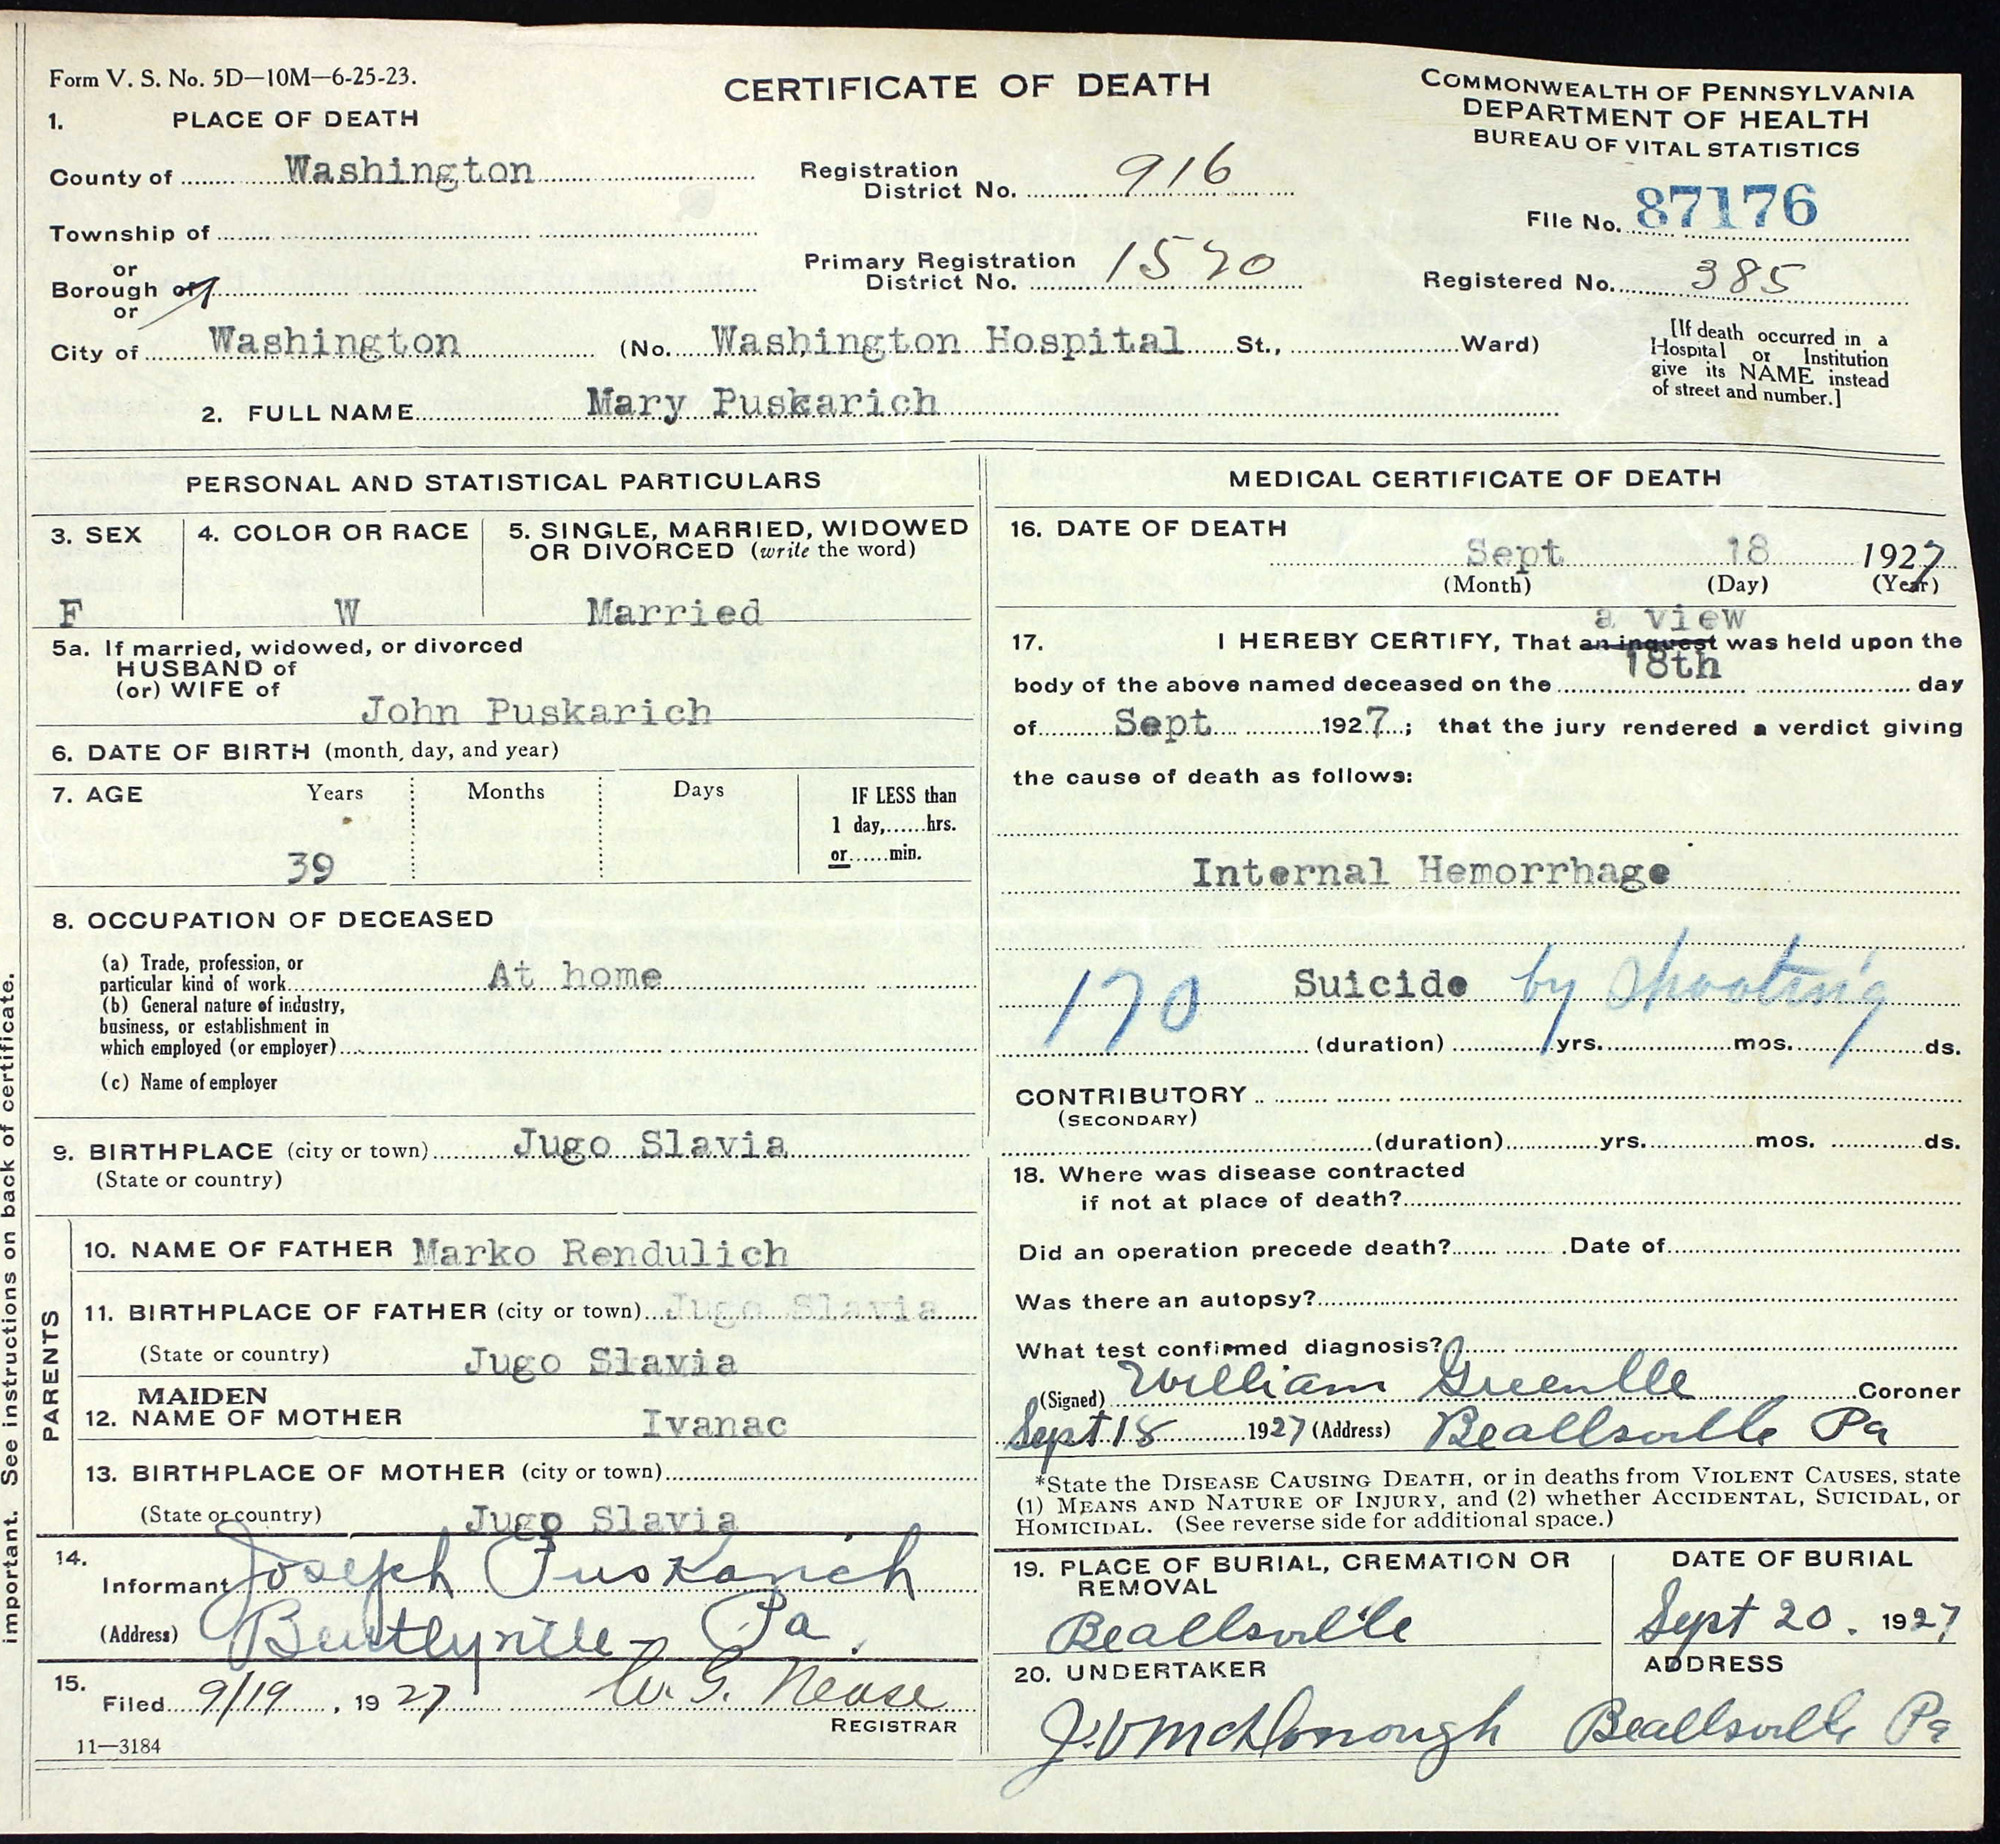 Form V. S. No. 5D—10M—6-25-23.
CERTIFICATE OF DEATH
COMMONWEALTH OF PENNSYLVANIA
DEPARTMENT OF HEALTH
BUREAU OF VITAL STATISTICS
1. PLACE OF DEATH
County of Washington
Registration District No. 916
File No. 87176
Township of
or
Borough of
or
Primary Registration District No. 1570
Registered No. 385
City of Washington (No. Washington Hospital St., Ward)
[If death occurred in a
Hospital or Institution
give its NAME instead
of street and number.]
2. FULL NAME Mary Puskarich
PERSONAL AND STATISTICAL PARTICULARS
3. SEX
F
4. COLOR OR RACE
W
5. SINGLE, MARRIED, WIDOWED
OR DIVORCED (write the word)
Married
5a. If married, widowed, or divorced
HUSBAND of
(or) WIFE of
John Puskarich
6. DATE OF BIRTH (month, day, and year)
7. AGE Years Months Days
39
IF LESS than
1 day, hrs.
or min.
8. OCCUPATION OF DECEASED
(a) Trade, profession, or
particular kind of work At home
(b) General nature of industry,
business, or establishment in
which employed (or employer)
(c) Name of employer
9. BIRTHPLACE (city or town) Jugo Slavia
(State or country)
PARENTS
10. NAME OF FATHER Marko Rendulich
11. BIRTHPLACE OF FATHER (city or town) Jugo Slavia
(State or country) Jugo Slavia
MAIDEN
12. NAME OF MOTHER Ivanac
13. BIRTHPLACE OF MOTHER (city or town)
(State or country) Jugo Slavia
14.
Informant Joseph Puskarich
(Address) Bentlyville Pa.
15.
Filed 9/19, 1927 W. G. Nease
REGISTRAR
11—3184
MEDICAL CERTIFICATE OF DEATH
16. DATE OF DEATH
Sept 18 1927
(Month) (Day) (Year)
a view
17. I HEREBY CERTIFY, That an inquest was held upon the
body of the above named deceased on the 18th day
of Sept 1927; that the jury rendered a verdict giving
the cause of death as follows:
Internal Hemorrhage
170 Suicide by shooting
(duration) yrs. mos. ds.
CONTRIBUTORY
(SECONDARY)
(duration) yrs. mos. ds.
18. Where was disease contracted
if not at place of death?
Did an operation precede death? Date of
Was there an autopsy?
What test confirmed diagnosis?
(Signed) William Greenlee Coroner
Sept 18 1927 (Address) Beallsville Pa
*State the DISEASE CAUSING DEATH, or in deaths from VIOLENT CAUSES, state
(1) MEANS AND NATURE OF INJURY, and (2) whether ACCIDENTAL, SUICIDAL, or
HOMICIDAL. (See reverse side for additional space.)
19. PLACE OF BURIAL, CREMATION OR
REMOVAL
Beallsville
DATE OF BURIAL
Sept 20. 1927
20. UNDERTAKER
J. V McDonough
ADDRESS
Beallsville Pa
important. See instructions on back of certificate.